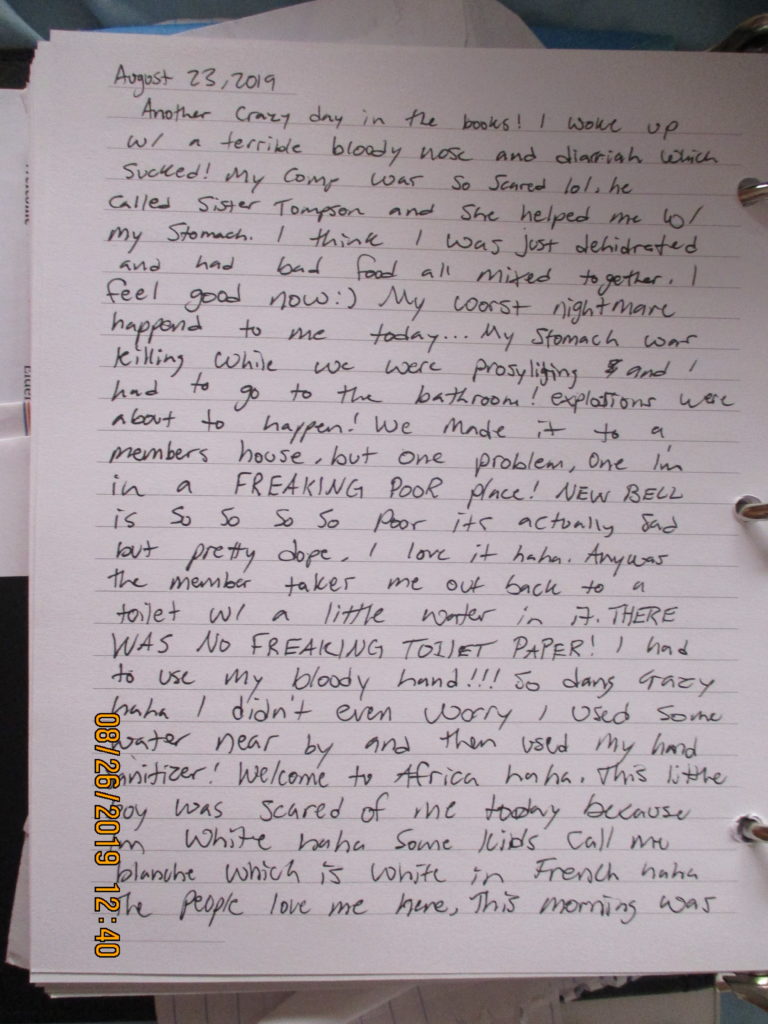 August 23, 2019
Another Crazy day in the books! I woke up
w/ a terrible bloody nose and diarriah which
sucked! My comp was so scared lol, he
called Sister Tompson and she helped me w/
my stomach. I think I was just dehidrated
and had bad food all mixed together. I
feel good now:) My worst nightmare
happend to me today... My stomach was
killing while we were prosyliting and I
had to go to the bathroom! explostions were
about to happen! We made it to a
members house, but one problem, One Im
in a FREAKING POOR place! NEW BELL
is So So So So Poor its actually sad
but pretty dope. I love it haha. Anyways
the member takes me out back to a
toilet w/ a little water in it. THERE
WAS NO FREAKING TOILET PAPER! I had
to use my bloody hand!!! So dang crazy
haha I didn't even worry I used some
water near by and then used my hand
anitizer! Welcome to Africa haha. This little
boy was scared of me today because
m white haha Some kids call me
blanche which is white in French haha
The People love me here, This morning was
08/26/2019 12:40